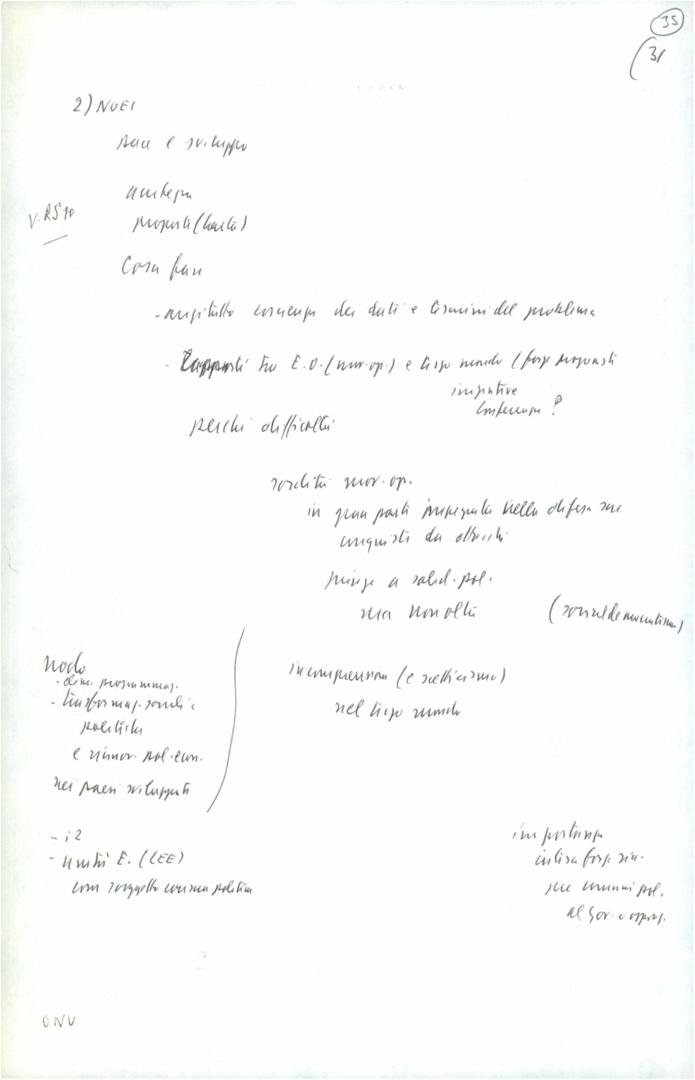 35
31
2) NOEI
Pace e sviluppo
V. RS 10
proposte (Carta)
Cosa fare
- anzitutto coscienza dei dati e termini del problema
- Rapporti tra E.O. (mov. op.) e terzo mondo (forze progressiste
iniziative
conferenza ?
perché difficoltà
sordità mov. op.
in gran parte impegnato nella difesa sue
conquiste da attacchi
spinge a solid. pol.
ma non oltre (socialdemocratismo)
nodo
- dim. programmaz.
- trasformaz. sociali e
politiche
e rinnov. pol. econ.
nei paesi sviluppati
incomprensioni (e scetticismo)
nel terzo mondo
- i 2
- unità E. (CEE)
come soggetto
importanza
intesa forze sin.
su comuni pol.
al gov. o oppos.
ONU